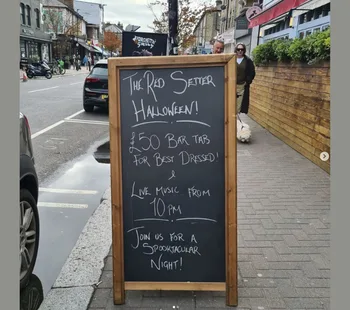 The Red Setter
Halloween!
£50 Bar Tab
For Best Dressed!
&
Live Music From
10pm
Join us for a
Spooktacular
Night!